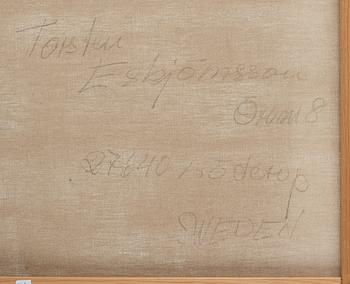 Torsten
Esbjörnsson
Örum 8
27640 Löderup
SWEDEN